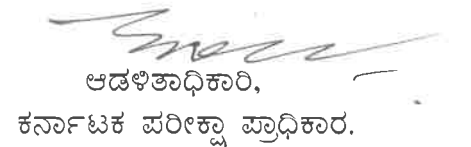 ಆಡಳಿತಾಧಿಕಾರಿ,
ಕರ್ನಾಟಕ ಪರೀಕ್ಷಾ ಪ್ರಾಧಿಕಾರ.